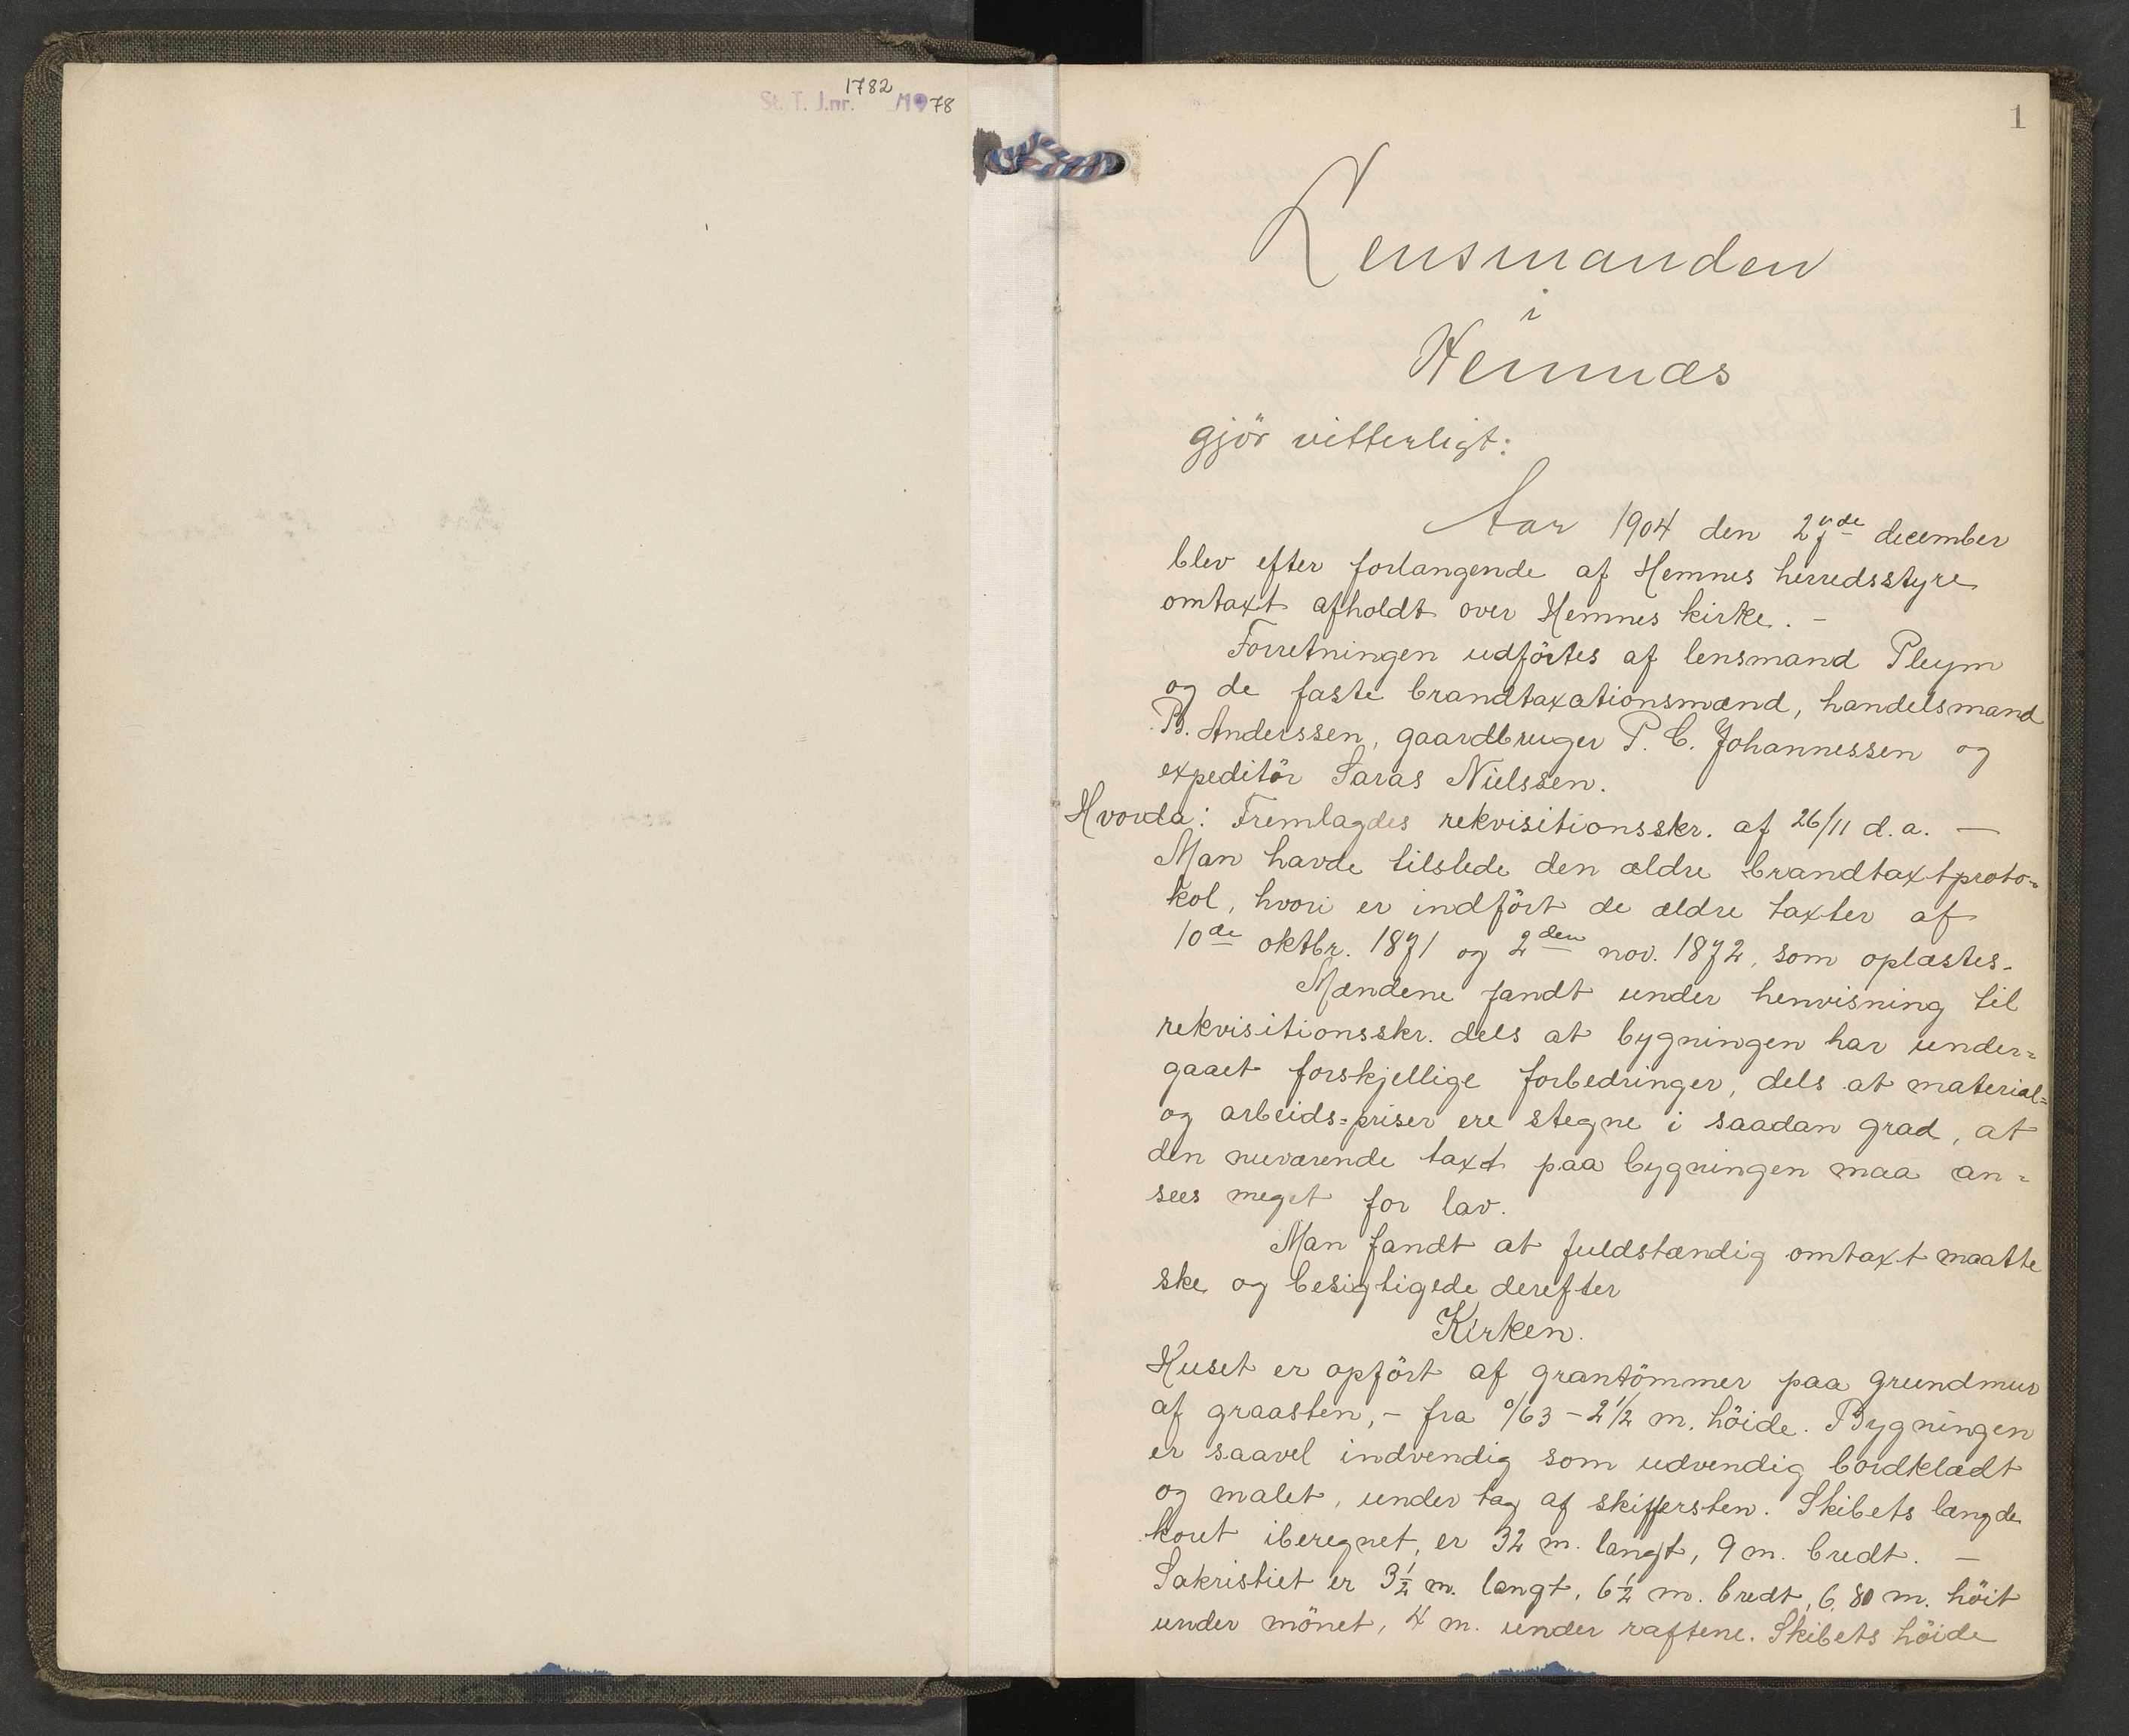 1782
St. T. J.nr. /1978
1
Lensmanden
i
Hemnæs
gjör vitterligt:
Aar 1904 den 27de december
blev efter forlangende af Hemnes herredsstyre
omtaxt afholdt over Hemnes kirke. –
Forretningen udförtes af lensmand Pleym
og de faste brandtaxationsmænd, handelsmand
B. Anderssen, gaardbruger P. C. Johannessen og
expeditör Saras Nielssen.
Hvorda: Fremlagdes rekvisitionsskr. af 26/11 d.a. —
Man havde tilstede den ældre brandtaxtproto=
kol, hvori er indfört de ældre taxter af
10de oktbr. 1871 og 2den nov. 1872, som oplæstes.
Mændene fandt under henvisning til
rekvisitionsskr. dels at bygningen har under=
gaaet forskjellige forbedringer, dels at material=
og arbeids=priser ere stegne i saadan grad, at
den nuværende taxt paa bygningen maa an=
sees meget for lav.
Man fandt at fuldstændig omtaxt maatte
ske og besigtigede derefter
Kirken.
Huset er opfört af grantömmer paa grundmur
af graasten, – fra 0/63 – 2 1/2 m. höide. Bygningen
er saavel indvendig som udvendig bordklædt
og malet, under tag af skiffersten. Skibets længde
koret iberegnet, er 32 m. langt, 9 m. bredt. —
Sakristiet er 3 1/2 m. langt, 6 1/2 m. bredt, 6.80 m. höit
under mönet, 4 m. under raftene. Skibets höide